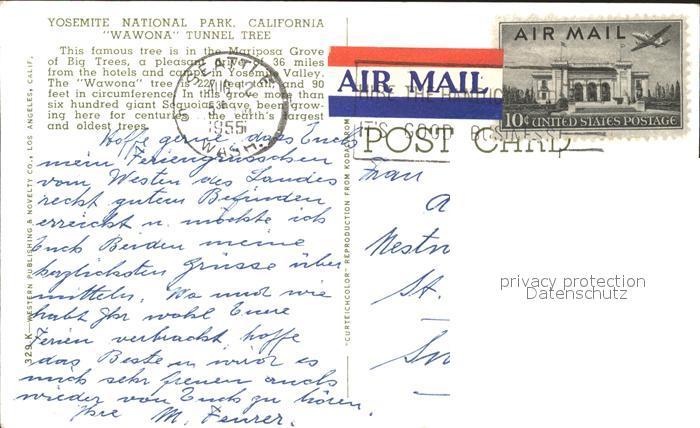 YOSEMITE NATIONAL PARK, CALIFORNIA
"WAWONA" TUNNEL TREE
This famous tree is in the Mariposa Grove
of Big Trees, a pleasant drive of 36 miles
from the hotels and camps in Yosemite Valley.
The "Wawona" tree is 227 feet and 90
feet in circumference. In this grove more than
six hundred giant Sequoias have been grow-
ing here for centuries the earth's largest
and oldest trees.
Hoffe gerne dass Euch
mein Feriengrüsschen
vom Westen des Landes
recht gutem Befinden
erreicht u. möchte ich
Euch Beiden meine
herzlichsten Grüsse über
mitteln. Wo und wie
habt Ihr wohl Eure
Ferien verbracht, hoffe
das Beste u. wird es
mich sehr freuen auch
wieder von Euch zu hören.
Ihre M. Feurer.
329 K—WESTERN PUBLISHING & NOVELTY CO., LOS ANGELES, CALIF.
"CURTEICHCOLOR" REPRODUCTION FROM KODACHROME
SEATTLE
1955
WASH.
AIR MAIL
IT'S GOOD BUSINESS
POST CARD
AIR MAIL
10¢ UNITED STATES POSTAGE
Frau
A
St.
privacy protection
Datenschutz